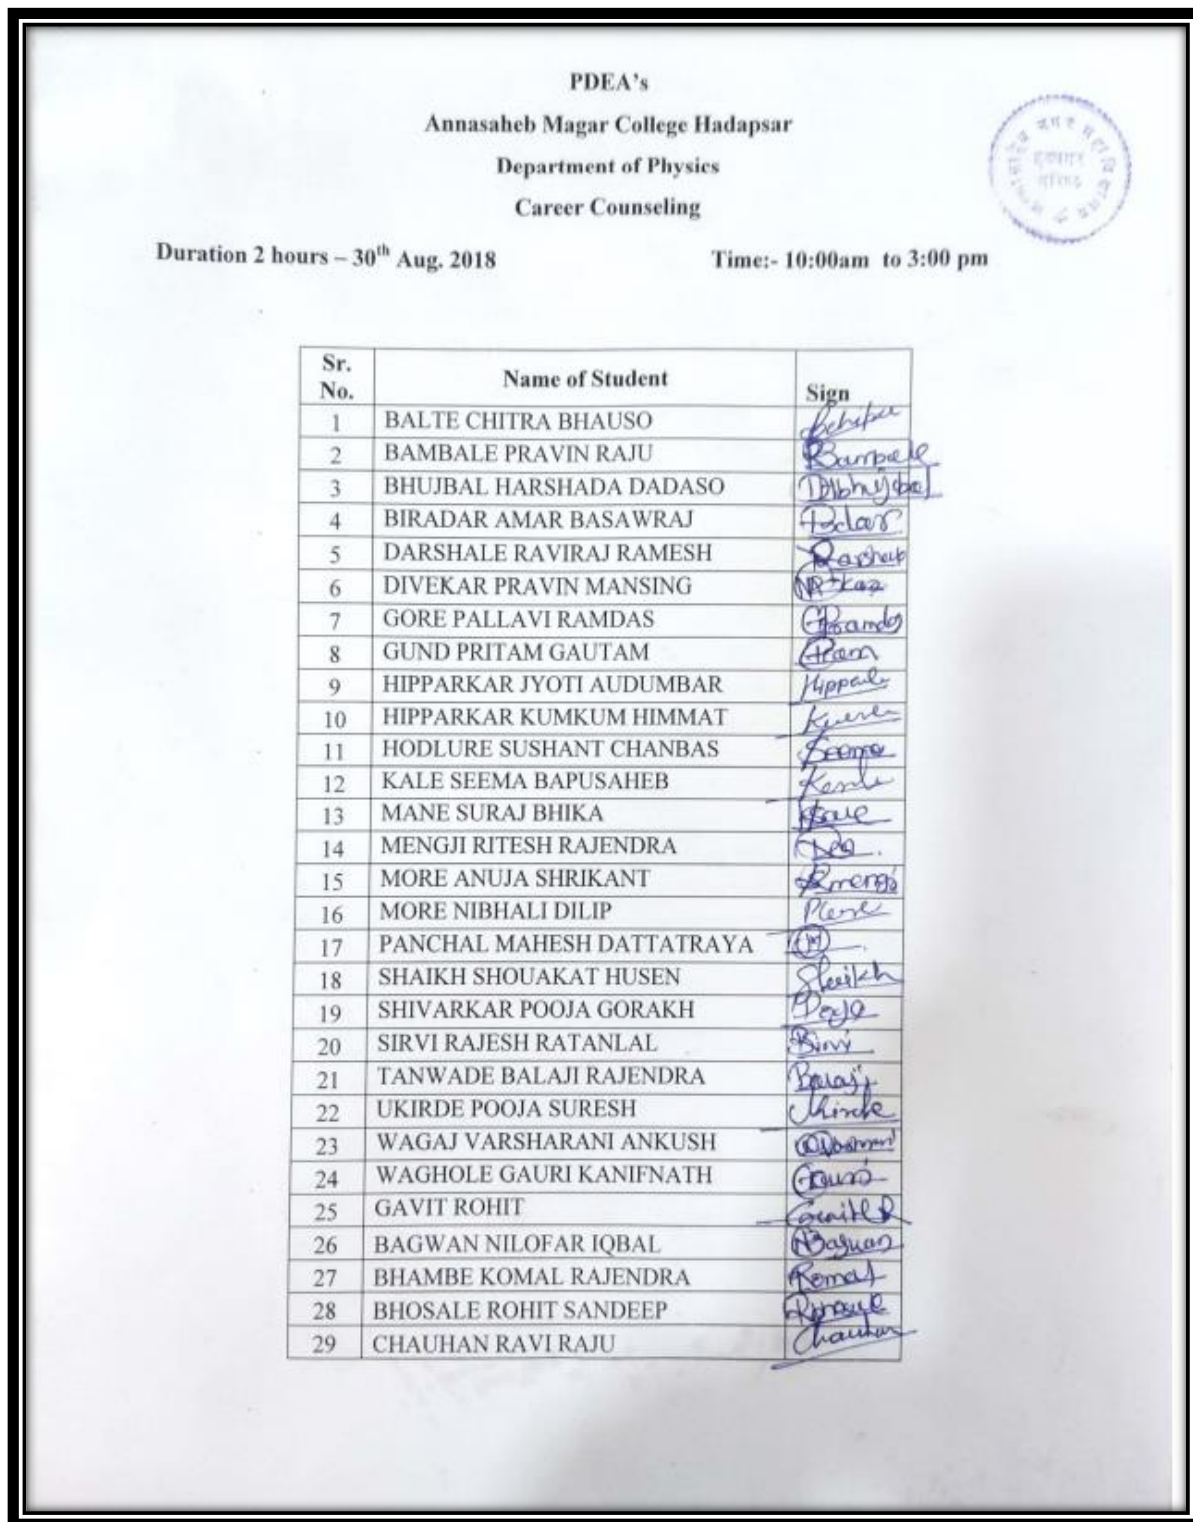 PDEA's
Annasaheb Magar College Hadapsar
Department of Physics
Career Counseling
Duration 2 hours – 30th Aug. 2018 Time:- 10:00am to 3:00 pm
Sr. No. Name of Student Sign
1 BALTE CHITRA BHAUSO
2 BAMBALE PRAVIN RAJU
3 BHUJBAL HARSHADA DADASO
4 BIRADAR AMAR BASAWRAJ
5 DARSHALE RAVIRAJ RAMESH
6 DIVEKAR PRAVIN MANSING
7 GORE PALLAVI RAMDAS
8 GUND PRITAM GAUTAM
9 HIPPARKAR JYOTI AUDUMBAR
10 HIPPARKAR KUMKUM HIMMAT
11 HODLURE SUSHANT CHANBAS
12 KALE SEEMA BAPUSAHEB
13 MANE SURAJ BHIKA
14 MENGJI RITESH RAJENDRA
15 MORE ANUJA SHRIKANT
16 MORE NIBHALI DILIP
17 PANCHAL MAHESH DATTATRAYA
18 SHAIKH SHOUAKAT HUSEN Shaikh
19 SHIVARKAR POOJA GORAKH
20 SIRVI RAJESH RATANLAL
21 TANWADE BALAJI RAJENDRA Balaji
22 UKIRDE POOJA SURESH
23 WAGAJ VARSHARANI ANKUSH
24 WAGHOLE GAURI KANIFNATH Gauri
25 GAVIT ROHIT
26 BAGWAN NILOFAR IQBAL
27 BHAMBE KOMAL RAJENDRA Komal
28 BHOSALE ROHIT SANDEEP
29 CHAUHAN RAVI RAJU Chauhan